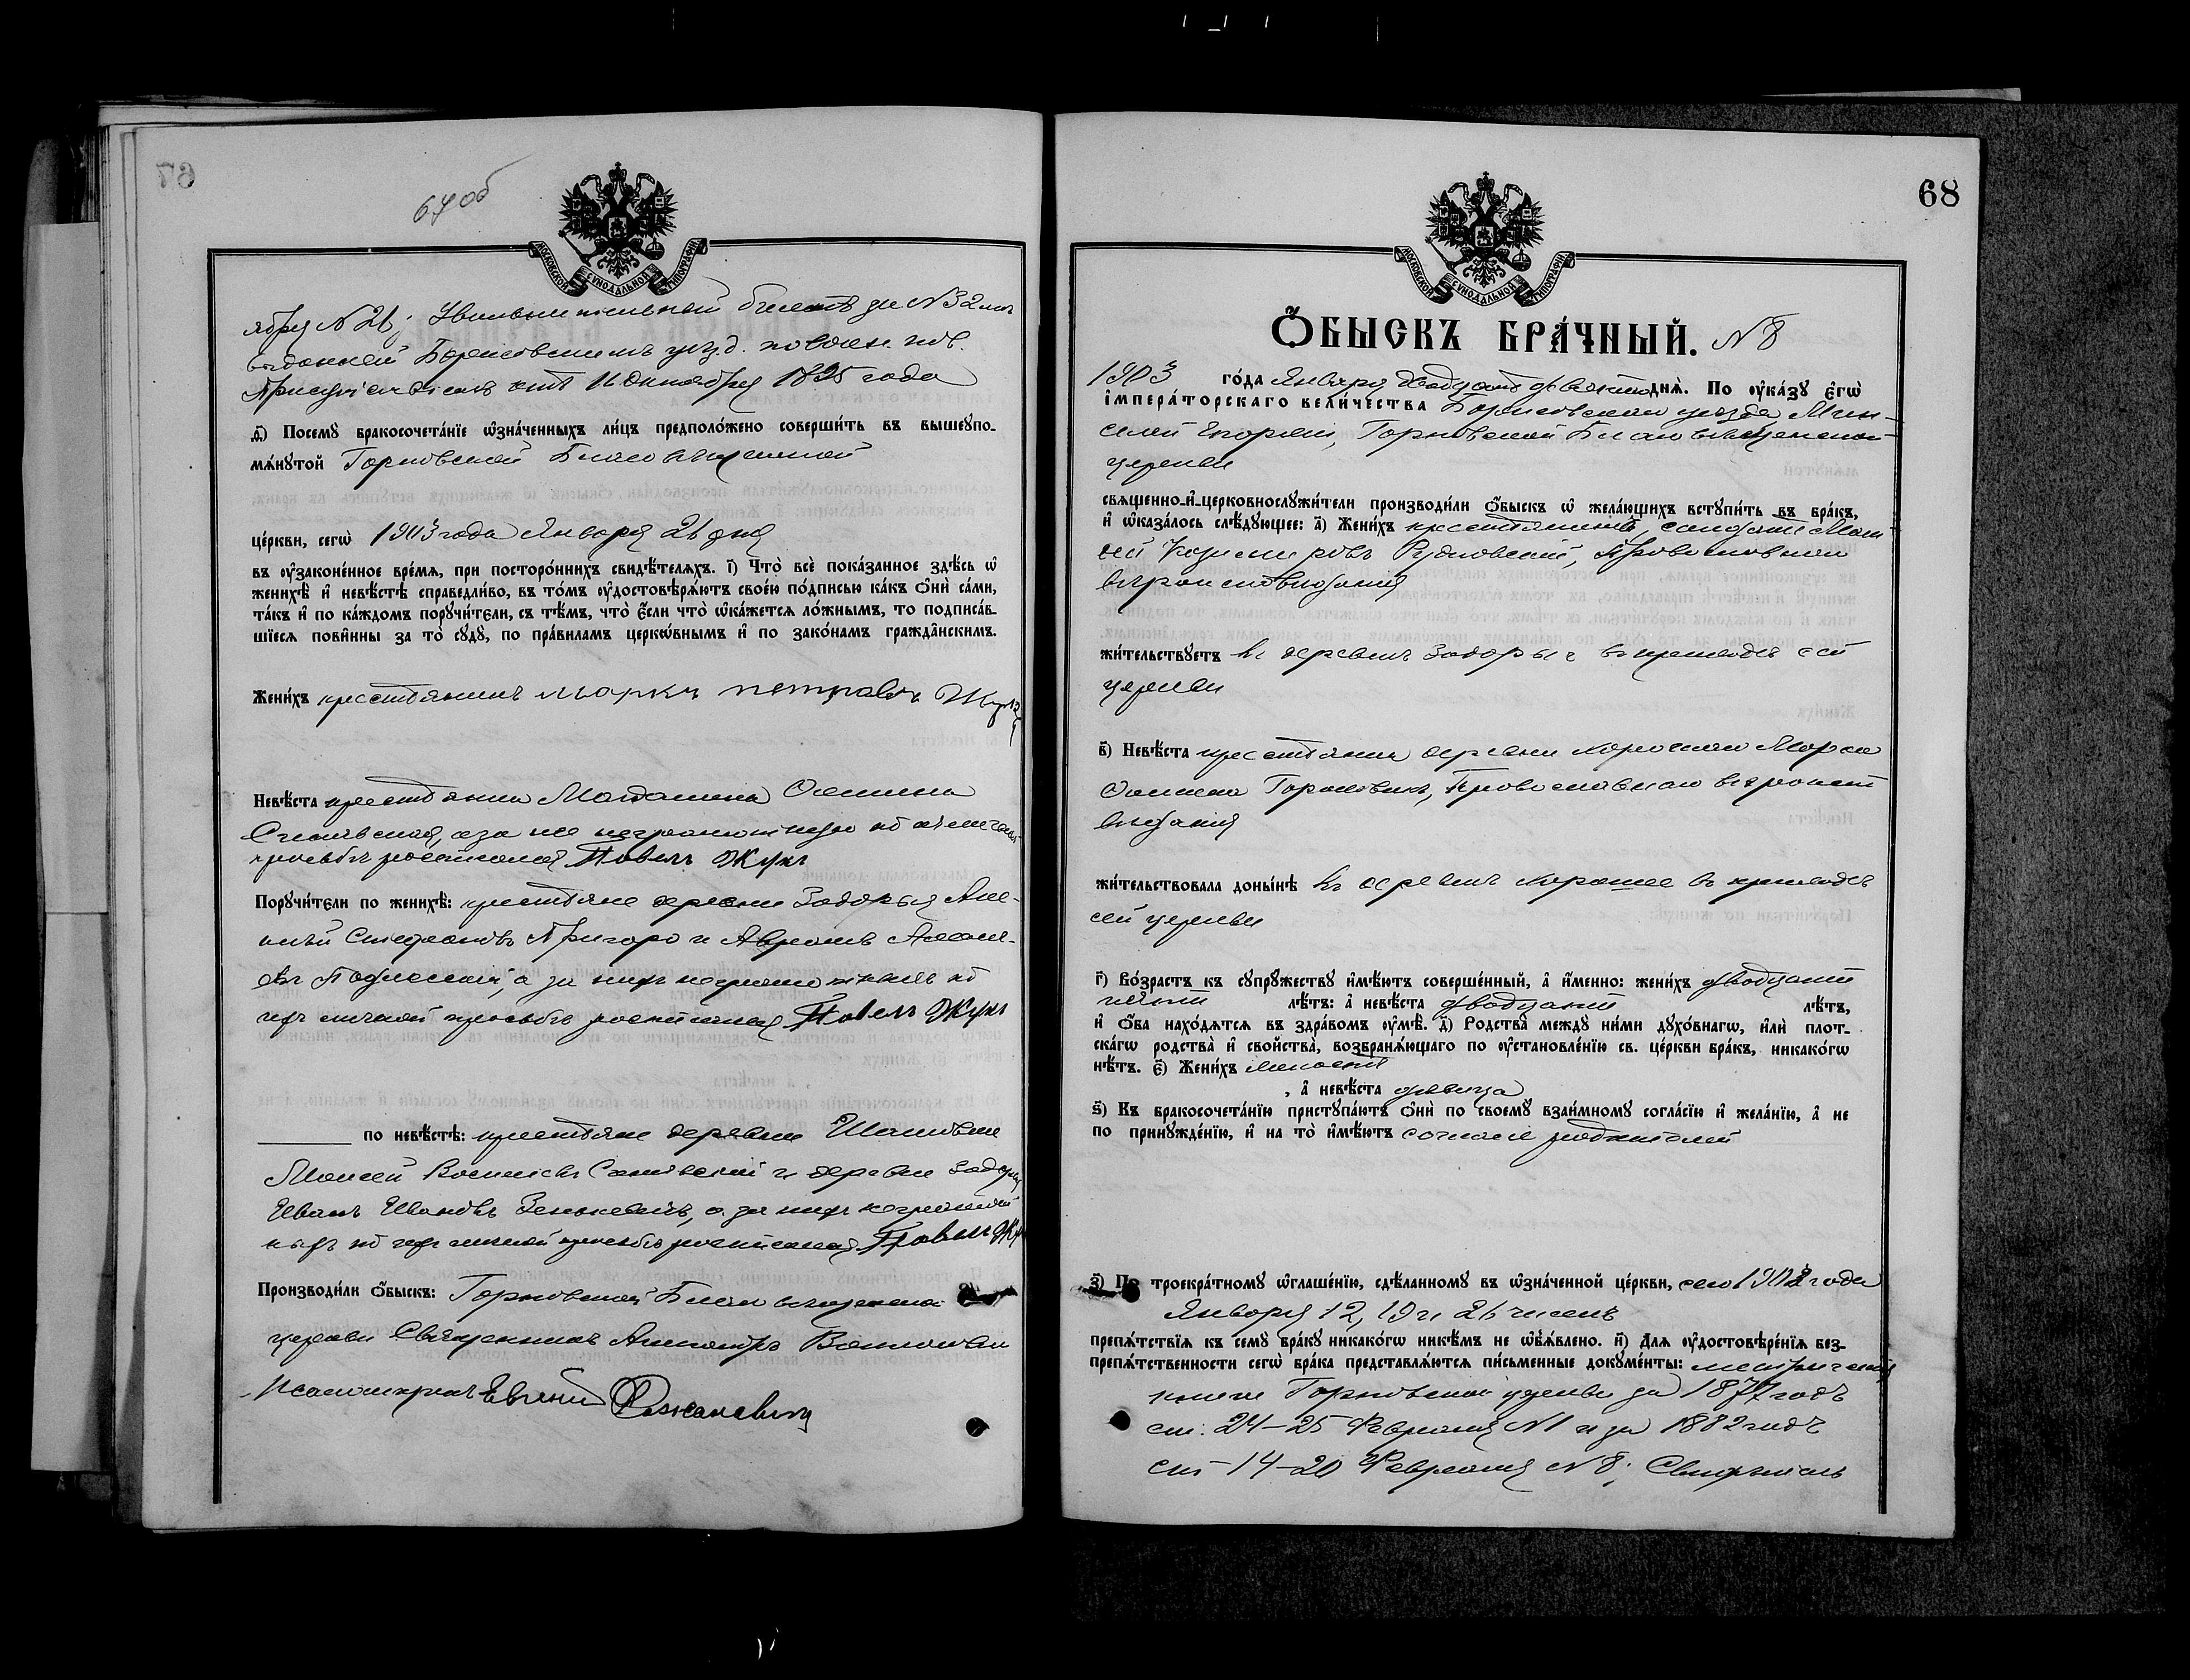 67об
МОСКОВСКОЙ СѴНОДАЛЬНОЙ ТИПОГРАФІИ
ября N 26; Увольнительный билетъ за N 32
выданный Борисовскимъ уѣзд. по воин. пов.
Присутствіемъ отъ 16 Октября 1895 года
д҃) Посемꙋ бракосочета́нїе ѡ҆зна́ченныхъ ли́цъ предполо́жено соверши́ть въ вышеꙋпо-
мѧ́нꙋтой Горковской Благовѣщенской
це́ркви, сегѡ̀ 1903 года Января 26 дня
въ ᲂу҆зако́не́нное вре́мѧ, при посторо́ннихъ свидѣ́телѧхъ. і҃) Что̀ всѐ пока́занное здѣ́сь ѡ҆
женихѣ̀ и҆ невѣ́стѣ справедли́во, въ то́мъ ᲂу҆достовѣрѧ́ютъ свое́ю по́дписью ка́къ ѻ҆нѝ са́ми,
та́къ и҆ по ка́ждомъ порꙋчи́тели, съ тѣ́мъ, что̀ є҆́сли что̀ ѡ҆ка́жетсѧ ло́жнымъ, то подписа́в-
шїесѧ пови́нны за то̀ сꙋдꙋ̀, по пра́виламъ церкѡ́внымъ и҆ по зако́намъ гражда́нскимъ.
Жени́хъ крестьянинъ Марко Петровъ
Невѣ́ста крестьянка Магдалина Осипова
а за нее неграмотную по ея личной
просьбѣ росписался Павелъ Жукъ
Порꙋчи́тели по женихѣ̀: крестьяне деревни Задорья Але-
ксѣй Стефановъ Пригаро и Авраамъ
а за нихъ неграмотныхъ по
ихъ личной просьбѣ росписался Павелъ Жукъ
по невѣ́стѣ: крестьяне деревни
Моисей и деревни Задорья
Иванъ Ивановъ Зенькевичъ, а за нихъ неграмот-
ныхъ по ихъ личной просьбѣ росписался Павелъ Жукъ
Производи́ли ѻ҆́быскъ: Горковской Благовѣщенской
церкви Священникъ Александръ
Псаломщикъ Евгеній
68
МОСКОВСКОЙ СѴНОДАЛЬНОЙ ТИПОГРАФІИ
Ѻ҆́БЫСКЪ БРА́ЧНЫЙ. N 8
1903 го́да Января двадцать девятаго днѧ̀. По ᲂу҆ка́зꙋ є҆гѡ̀
і҆мпера́торскаго вели́чества Борисовскаго уѣзда Мин-
ской Епархіи, Горковской Благовѣщенской
церкви
свѧще́нно-и҆-церковнослꙋжи́тели производи́ли ѻ҆́быскъ ѡ҆ жела́ющихъ встꙋпи́ть въ бра́къ,
и҆ ѡ҆каза́лось слѣ́дꙋющее: а҃) Жени́хъ крестьянинъ, солдатъ Мат-
вѣй Казимировъ Рудковскій, Православнаго
вѣроисповѣданія
жи́тельствꙋетъ въ деревнѣ Задорьѣ въ приходѣ сей
церкви
в҃) Невѣ́ста крестьянка деревни Хорошая Марѳа
Горновика, Православнаго вѣроиспо-
вѣданія
жи́тельствовала доны́нѣ въ деревнѣ Хорошее въ приходѣ
сей церкви
г҃) Во́зрастъ къ сꙋпрꙋ́жествꙋ и҆мѣ́ютъ соверше́нный, а҆ и҆́менно: жени́хъ двадцати
пяти лѣ́тъ: а҆ невѣ́ста двадцати лѣ́тъ,
и҆ ѻ҆́ба нахо́дѧтсѧ въ здра́вомъ ᲂу҆мѣ̀. д҃) Родства̀ междꙋ̀ ни́ми дꙋхо́внагѡ, и҆лѝ плот-
ска́гѡ родства̀ и҆ сво́йства, возбранѧ́ющаго по ᲂу҆становле́нїю св. це́ркви бра́къ, никако́гѡ
нѣ́тъ. є҃) Жени́хъ холостъ
, а҆ невѣ́ста дѣвица
ѕ҃) Къ бракосочета́нїю пристꙋпа́ютъ ѻ҆нѝ по своемꙋ̀ взаи́мномꙋ согла́сїю и҆ жела́нїю, а҆ не
по принꙋжде́нїю, и҆ на то̀ и҆мѣ́ютъ согласіе родителей
з҃) По троекра́тномꙋ ѡ҆глаше́нїю, сдѣ́ланномꙋ въ ѡ҆зна́ченной це́ркви, сего 1903 года
Января 12, 19 и 26 чиселъ
препѧ́тствїѧ къ семꙋ̀ бра́кꙋ никако́гѡ никѣ́мъ не ѡ҆б̾ѧ́влено. и҃) Для ᲂу҆достовѣре́нїѧ без-
препѧ́тственности сегѡ̀ бра́ка представлѧ́ютсѧ пи́сьменные докꙋме́нты: метрическія
книги Горковской церкви за 1877 годъ
ст. 24-25 Февраля N 1 и за 1882 годъ
ст 14-20 Февраля N 8;